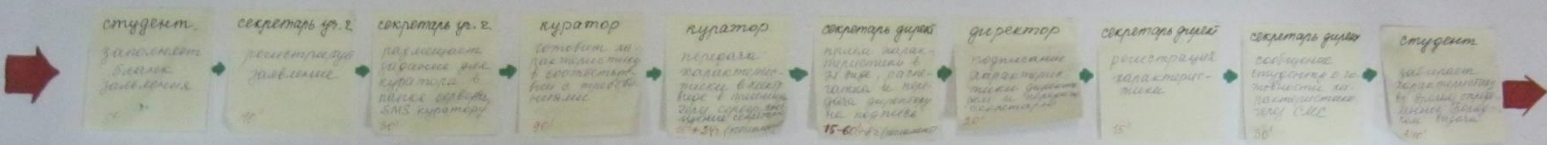 студент
заполняет
бланк
заявления
секретарь уч. ч.
регистрирует
заявление
10'
секретарь уч. ч.
размещает
задание для
куратора в
папке сервера,
SMS куратору
30'
куратор
готовит ха-
рактеристику
в соответст-
вии с требова-
ниями
30'
куратор
передача
характерис-
тики в элект
виде в
секретарь директ
прием харак-
теристики в
эл виде, распе-
чатка и пере-
дача директору
на подпись
15-60'
директор
подписание
характерис-
тики директо-
ром и передача
секретарю
секретарь директ
регистрация
характерис-
тики
15'
секретарь директ
сообщение
студенту о го-
товности ха-
рактеристики
через СМС
30'
студент
забирает
характеристику